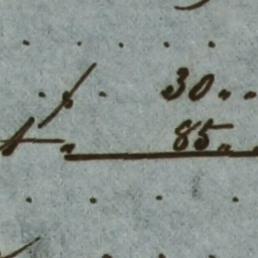 30 „
85 „